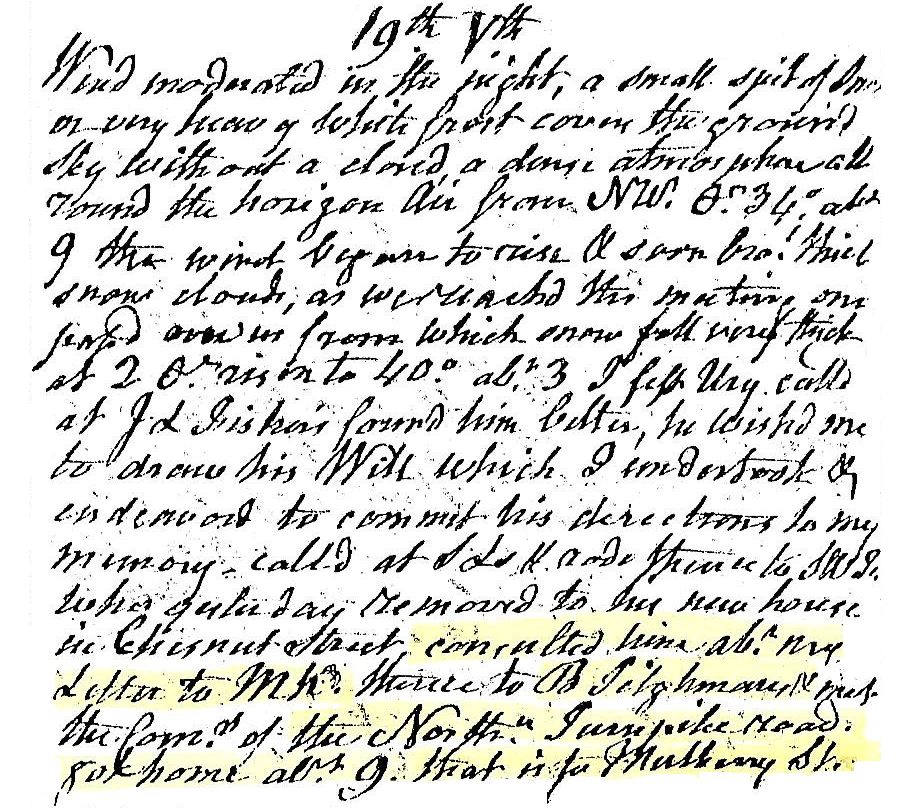 19th Vth
Wind moderated in the night, a small spit of Sno
or very heavy white frost covers the ground
Sky without a cloud, a dense atmosphere all
round the horizon Air from NW. 34° abt
9 the wind began to rise & soon bro't thick
snow clouds, as we reachd the meeting one
passd over us from which snow fell very thick
at 2 risen to 40° abt 3 I left calld
at J L Fishers found him better, he wishd me
to draw his Will which I undertook &
endeavord to commit his directions to my
memory - calld at rode thence to
who yesterday removed to his new house
in Chesnut Street, consulted him abt my
Letter to thence to B Tilghmans & met
the Comrs of the Northn Turnpike road.
got home abt 9. that is to Mulberry St.